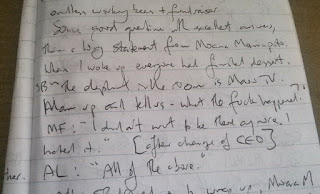 endless working teas + fundraiser
Some good questions with excellent answers,
then a long statement from Moana Maniapoto.
When I woke up everyone had finished dessert.
SB - the elephant in the room is Maori TV.
up and tell us - what the fuck happened?"
MF: "I didn't want to be there anymore. I
hated it." [after change of CEO]
AL: "All of the above."
to wrap up Moana M